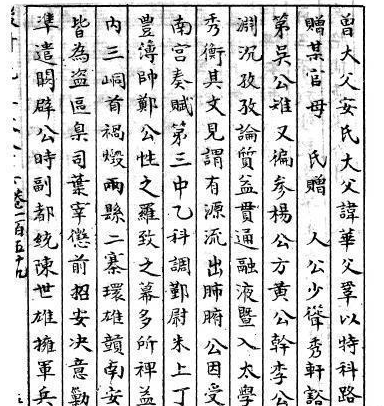 曾大父安氏大父諱華父鞏以特科路
贈某官母　氏贈　人公少聳秀軒豁
第吳公雉又徧參楊公方黃公幹李公
淵沉孜孜論質益貫通融液暨入太學
秀衡其文見謂有源流出肺腑公因受
南宮奏賦第三中乙科調鄞尉未上丁
豐溥帥鄭公性之羅致之幕多所裨益
內三峒首禍燬兩縣二寨環雄贛南安
皆為盜區臬司葉宰懲前招安決意勦
準遣闕辟公時副都統陳世雄擁軍兵
卷一百五十九